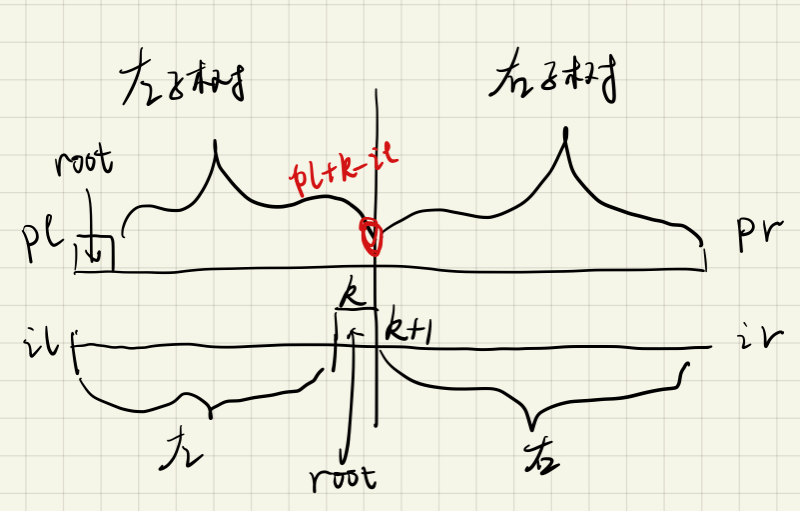 左子树
右子树
root
pl+k-il
pl
pr
k
il
k+1
ir
左
右
root